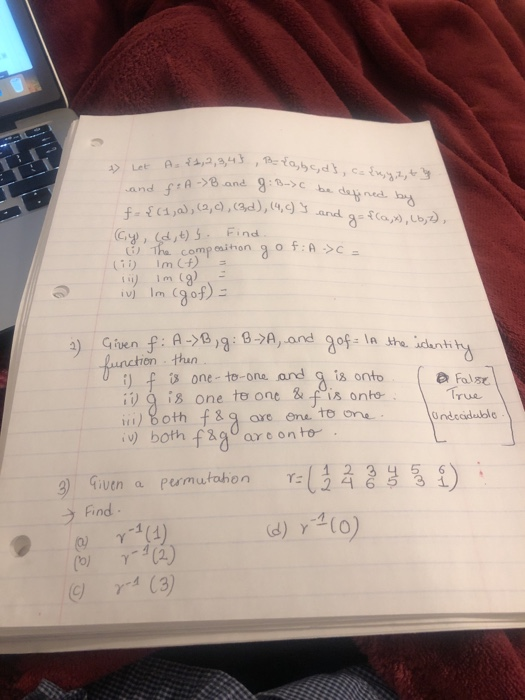 1) Let A = {1,2,3,4}, B={a,b,c,d}, C={x,y,z,t}
and f:A->B and g:B->C be defined by
f={(1,a),(2,c),(3,d),(4,c)} and g={(a,x),(b,z),
(c,y),(d,t)}. Find.
(i) The composition g o f:A->C =
(ii) Im(f) =
iii) Im(g) =
iv) Im(gof) =
2) Given f: A->B, g: B->A, and gof=1A the identity
function. then.
i) f is one-to-one and g is onto
ii) g is one to one & f is onto.
iii) both f&g are one to one.
iv) both f&g are onto.
False
True
Undecidable.
3) Given a permutation r=(1 2 3 4 5 6
2 4 6 5 3 1)
→ Find.
(a) r-1(1) (d) r-1(0)
(b) r-1(2)
(c) r-1 (3)